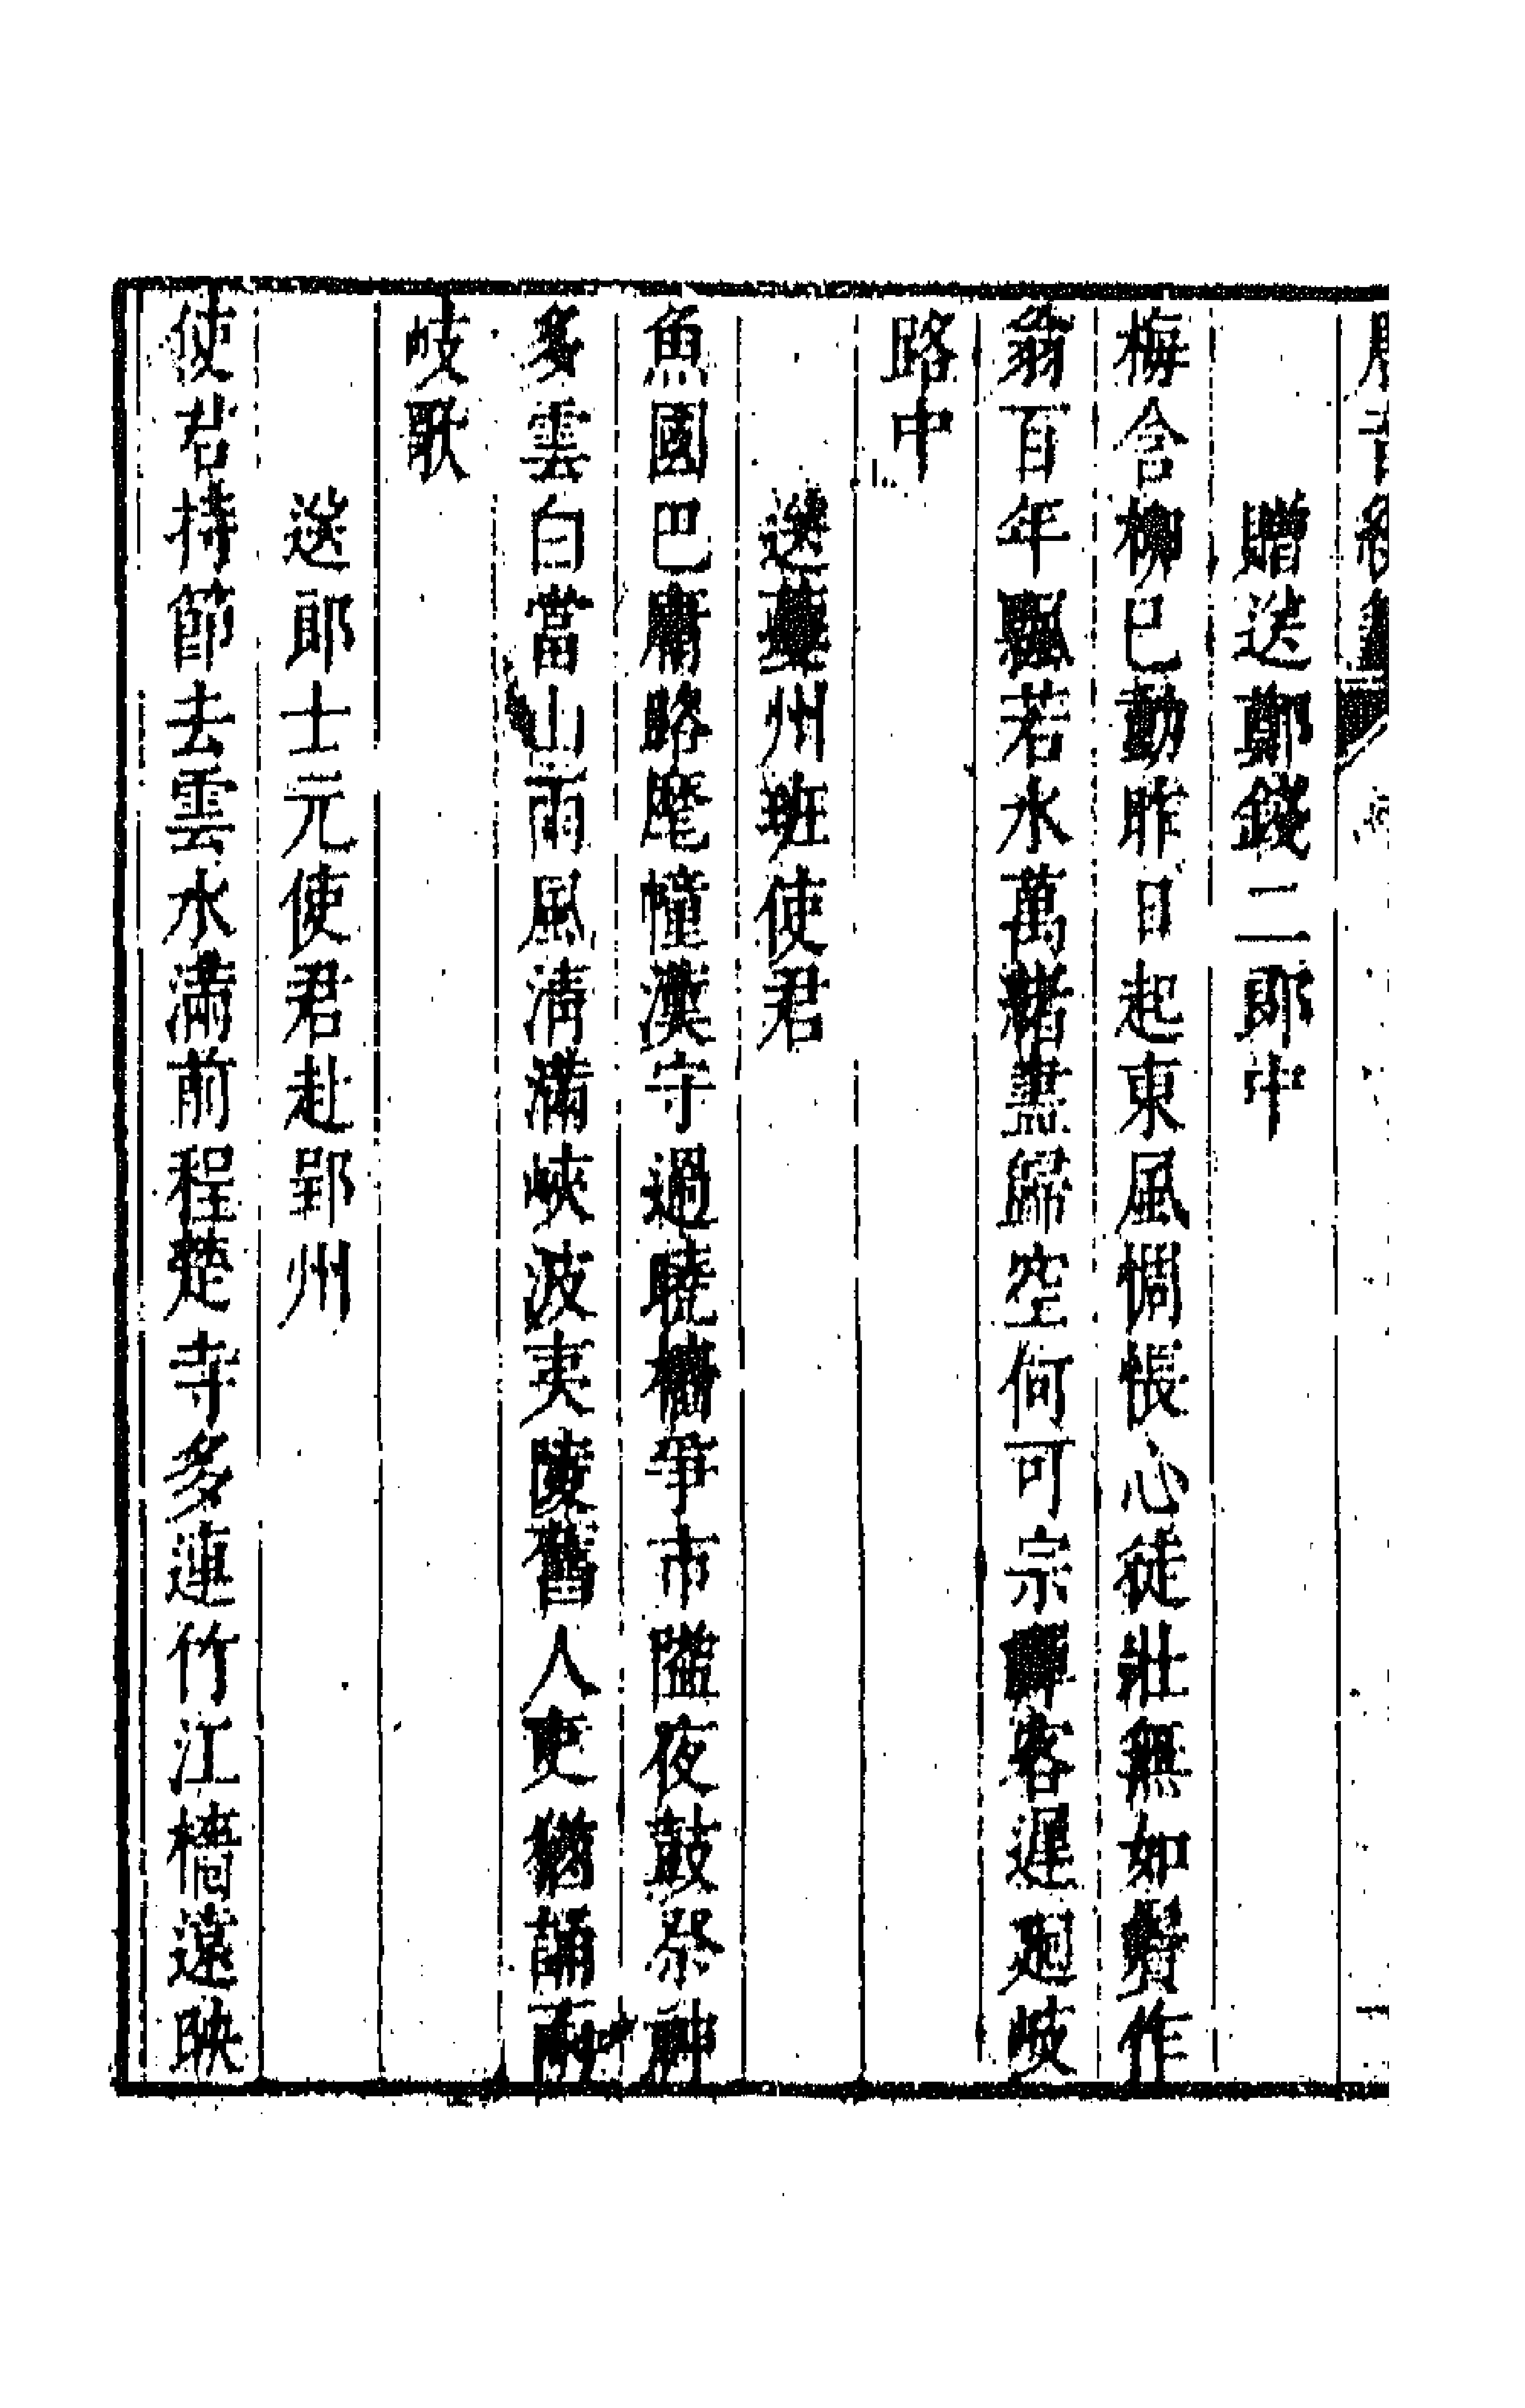 贈送鄭錢二郎中
梅含柳已動昨日起東風惆悵心徒壯無如鬢作
翁百年飄若水萬緒盡歸空何可宗禪客遲迴岐
路中
送夔州班使君
魚國巴庸路麾幢漢守過曉檣爭市隘夜鼓祭神
多雲白當山雨風清滿峽波夷陵舊人吏猶誦兩
岐歌
送郎士元使君赴郢州
使君持節去雲水滿前程楚寺多連竹江檣遠映